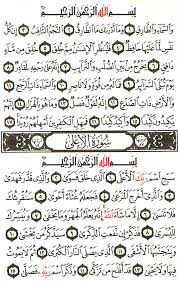 بِسْمِ اللَّهِ الرَّحْمَٰنِ الرَّحِيمِ
وَالسَّمَاءِ وَالطَّارِقِ ١ وَمَا أَدْرَاكَ مَا الطَّارِقُ ٢ النَّجْمُ الثَّاقِبُ ٣ إِن كُلُّ
نَفْسٍ لَّمَّا عَلَيْهَا حَافِظٌ ٤ فَلْيَنظُرِ الْإِنسَانُ مِمَّ خُلِقَ ٥ خُلِقَ مِن مَّاءٍ دَافِقٍ
٦ يَخْرُجُ مِن بَيْنِ الصُّلْبِ وَالتَّرَائِبِ ٧ إِنَّهُ عَلَىٰ رَجْعِهِ لَقَادِرٌ ٨
يَوْمَ تُبْلَى السَّرَائِرُ ٩ فَمَا لَهُ مِن قُوَّةٍ وَلَا نَاصِرٍ ١٠ وَالسَّمَاءِ ذَاتِ الرَّجْعِ ١١
وَالْأَرْضِ ذَاتِ الصَّدْعِ ١٢ إِنَّهُ لَقَوْلٌ فَصْلٌ ١٣ وَمَا هُوَ بِالْهَزْلِ ١٤ إِنَّهُمْ
يَكِيدُونَ كَيْدًا ١٥ وَأَكِيدُ كَيْدًا ١٦ فَمَهِّلِ الْكَافِرِينَ أَمْهِلْهُمْ رُوَيْدًا ١٧
سُورَةُ الْأَعْلَىٰ
بِسْمِ اللَّهِ الرَّحْمَٰنِ الرَّحِيمِ
سَبِّحِ اسْمَ رَبِّكَ الْأَعْلَى ١ الَّذِي خَلَقَ فَسَوَّىٰ ٢ وَالَّذِي قَدَّرَ فَهَدَىٰ
٣ وَالَّذِي أَخْرَجَ الْمَرْعَىٰ ٤ فَجَعَلَهُ غُثَاءً أَحْوَىٰ ٥ سَنُقْرِئُكَ
فَلَا تَنسَىٰ ٦ إِلَّا مَا شَاءَ اللَّهُ إِنَّهُ يَعْلَمُ الْجَهْرَ وَمَا يَخْفَىٰ ٧ وَنُيَسِّرُكَ
لِلْيُسْرَىٰ ٨ فَذَكِّرْ إِن نَّفَعَتِ الذِّكْرَىٰ ٩ سَيَذَّكَّرُ مَن يَخْشَىٰ ١٠
وَيَتَجَنَّبُهَا الْأَشْقَى ١١ الَّذِي يَصْلَى النَّارَ الْكُبْرَىٰ ١٢ ثُمَّ لَا يَمُوتُ
فِيهَا وَلَا يَحْيَىٰ ١٣ قَدْ أَفْلَحَ مَن تَزَكَّىٰ ١٤ وَذَكَرَ اسْمَ رَبِّهِ فَصَلَّىٰ ١٥